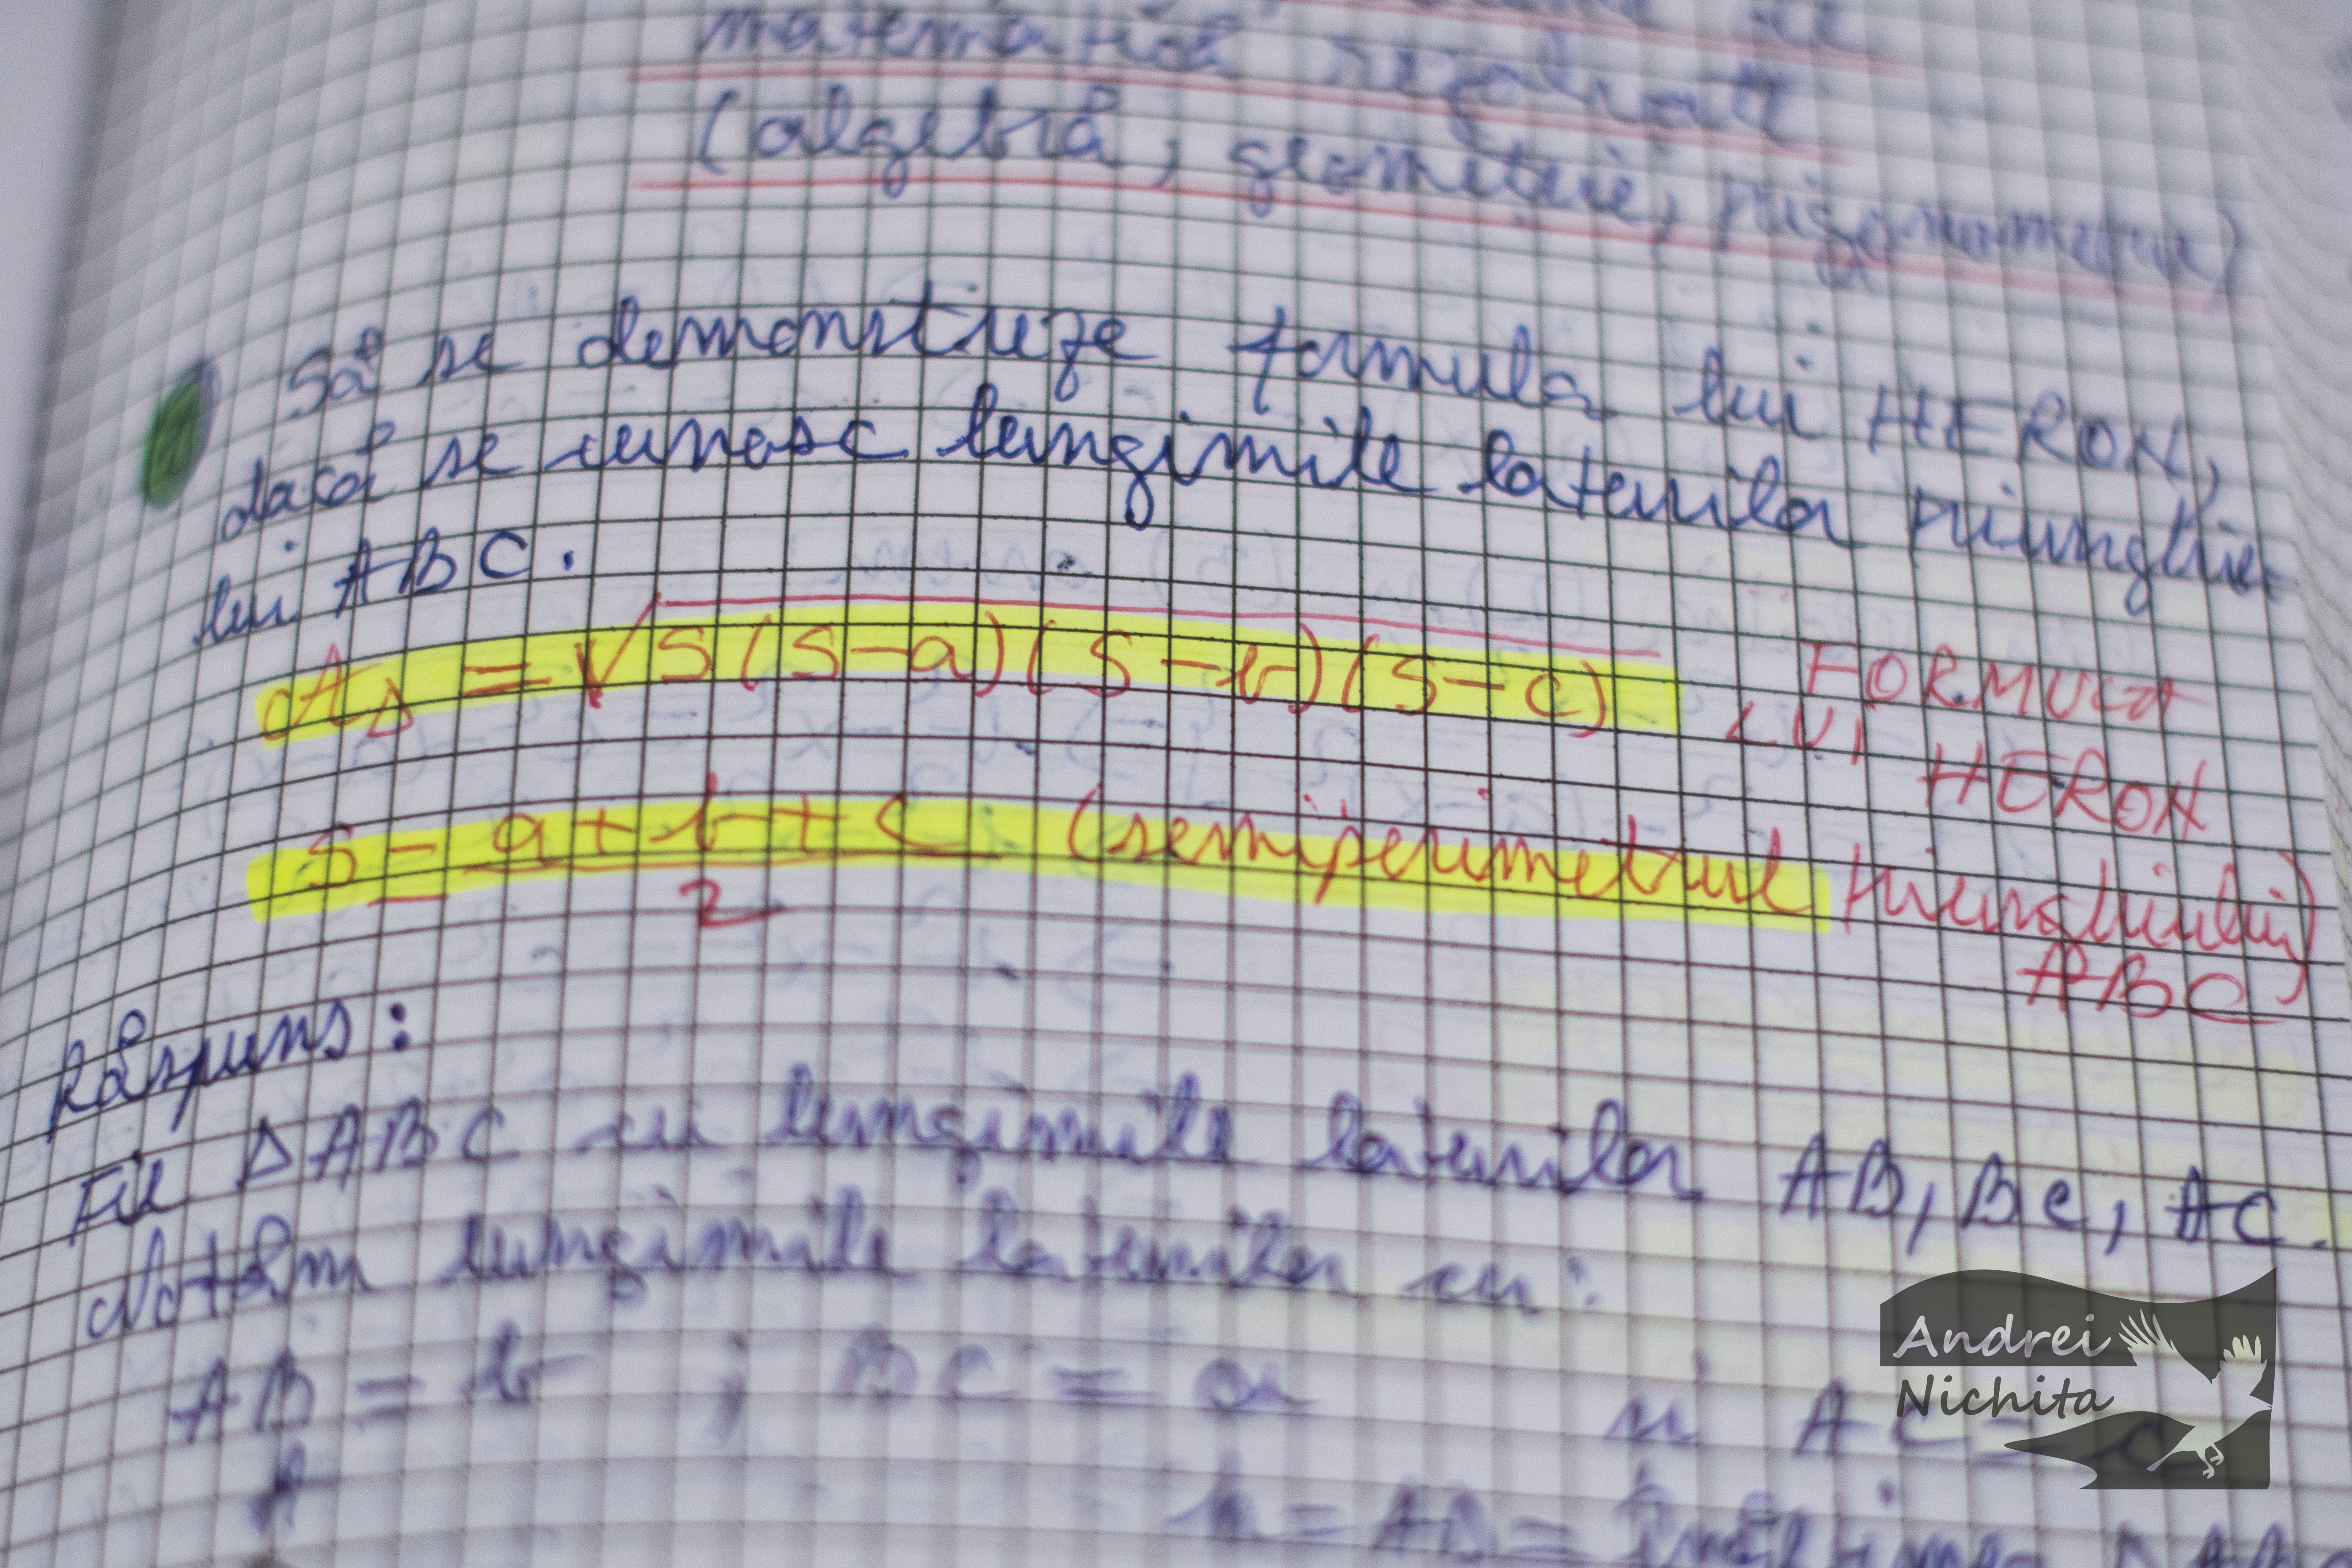 matematică rezolvate
(algebră, geometrie, trigonometrie)
Să se demonstreze formula lui HERON,
dacă se cunosc lungimile laturilor triunghiu-
lui ABC.
A△ = √S(S-a)(S-b)(S-c) FORMULA
LUI HERON
S = a+b+c (semiperimetrul triunghiului)
2
ABC
Răspuns:
Fie △ABC cu lungimile laturilor AB, BC, AC.
Notăm lungimile laturilor cu:
AB = b ; BC = a și AC = c
A
h = AD =
Andrei
Nichita